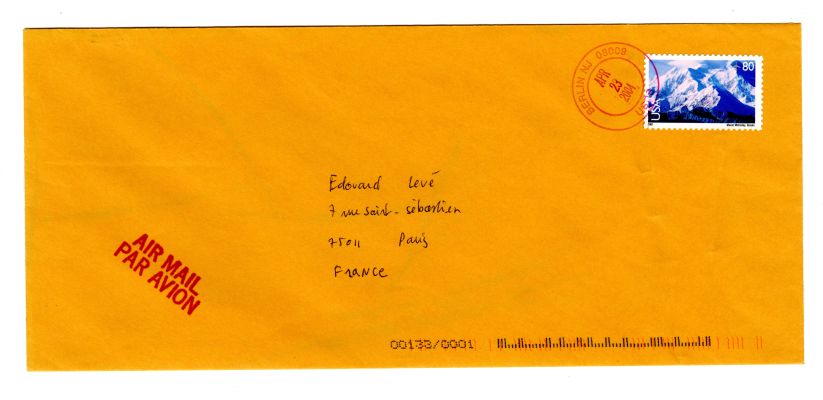 BERLIN NJ 08009
APR
23
2004
USPO
80
USA
Edouard Levé
7 rue saint-sébastien
75011 Paris
France
AIR MAIL
PAR AVION
00133/0001